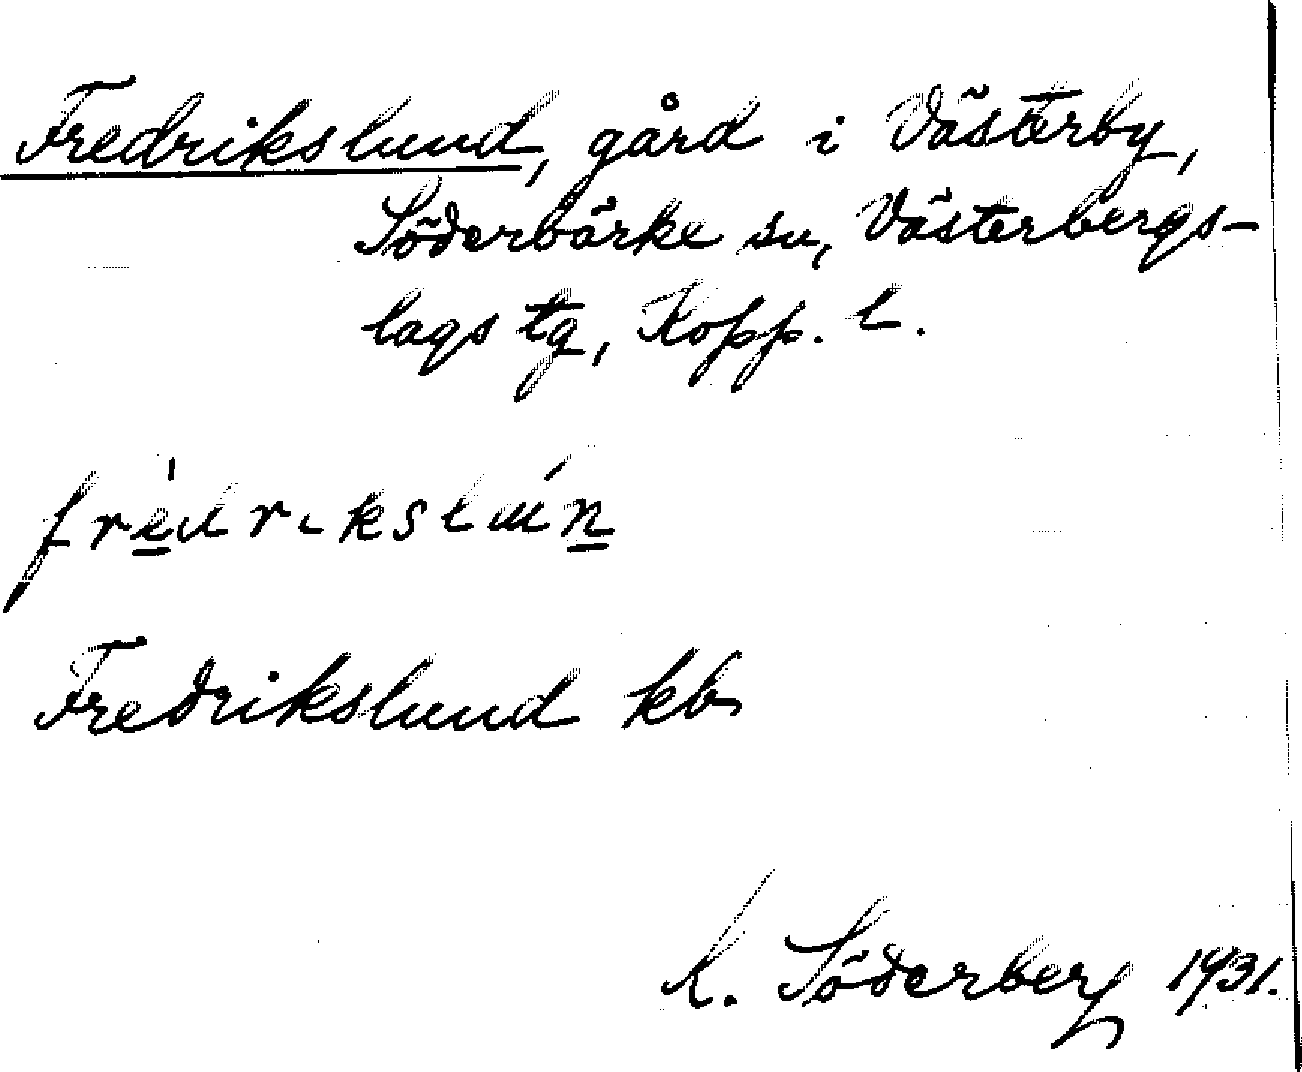 Fredrikslund, gård i Västerby,
Söderbärke sn, Västerbergs-
lags tg, Kopp. l.
Fredrikslund kb
K. Söderberg 1931.